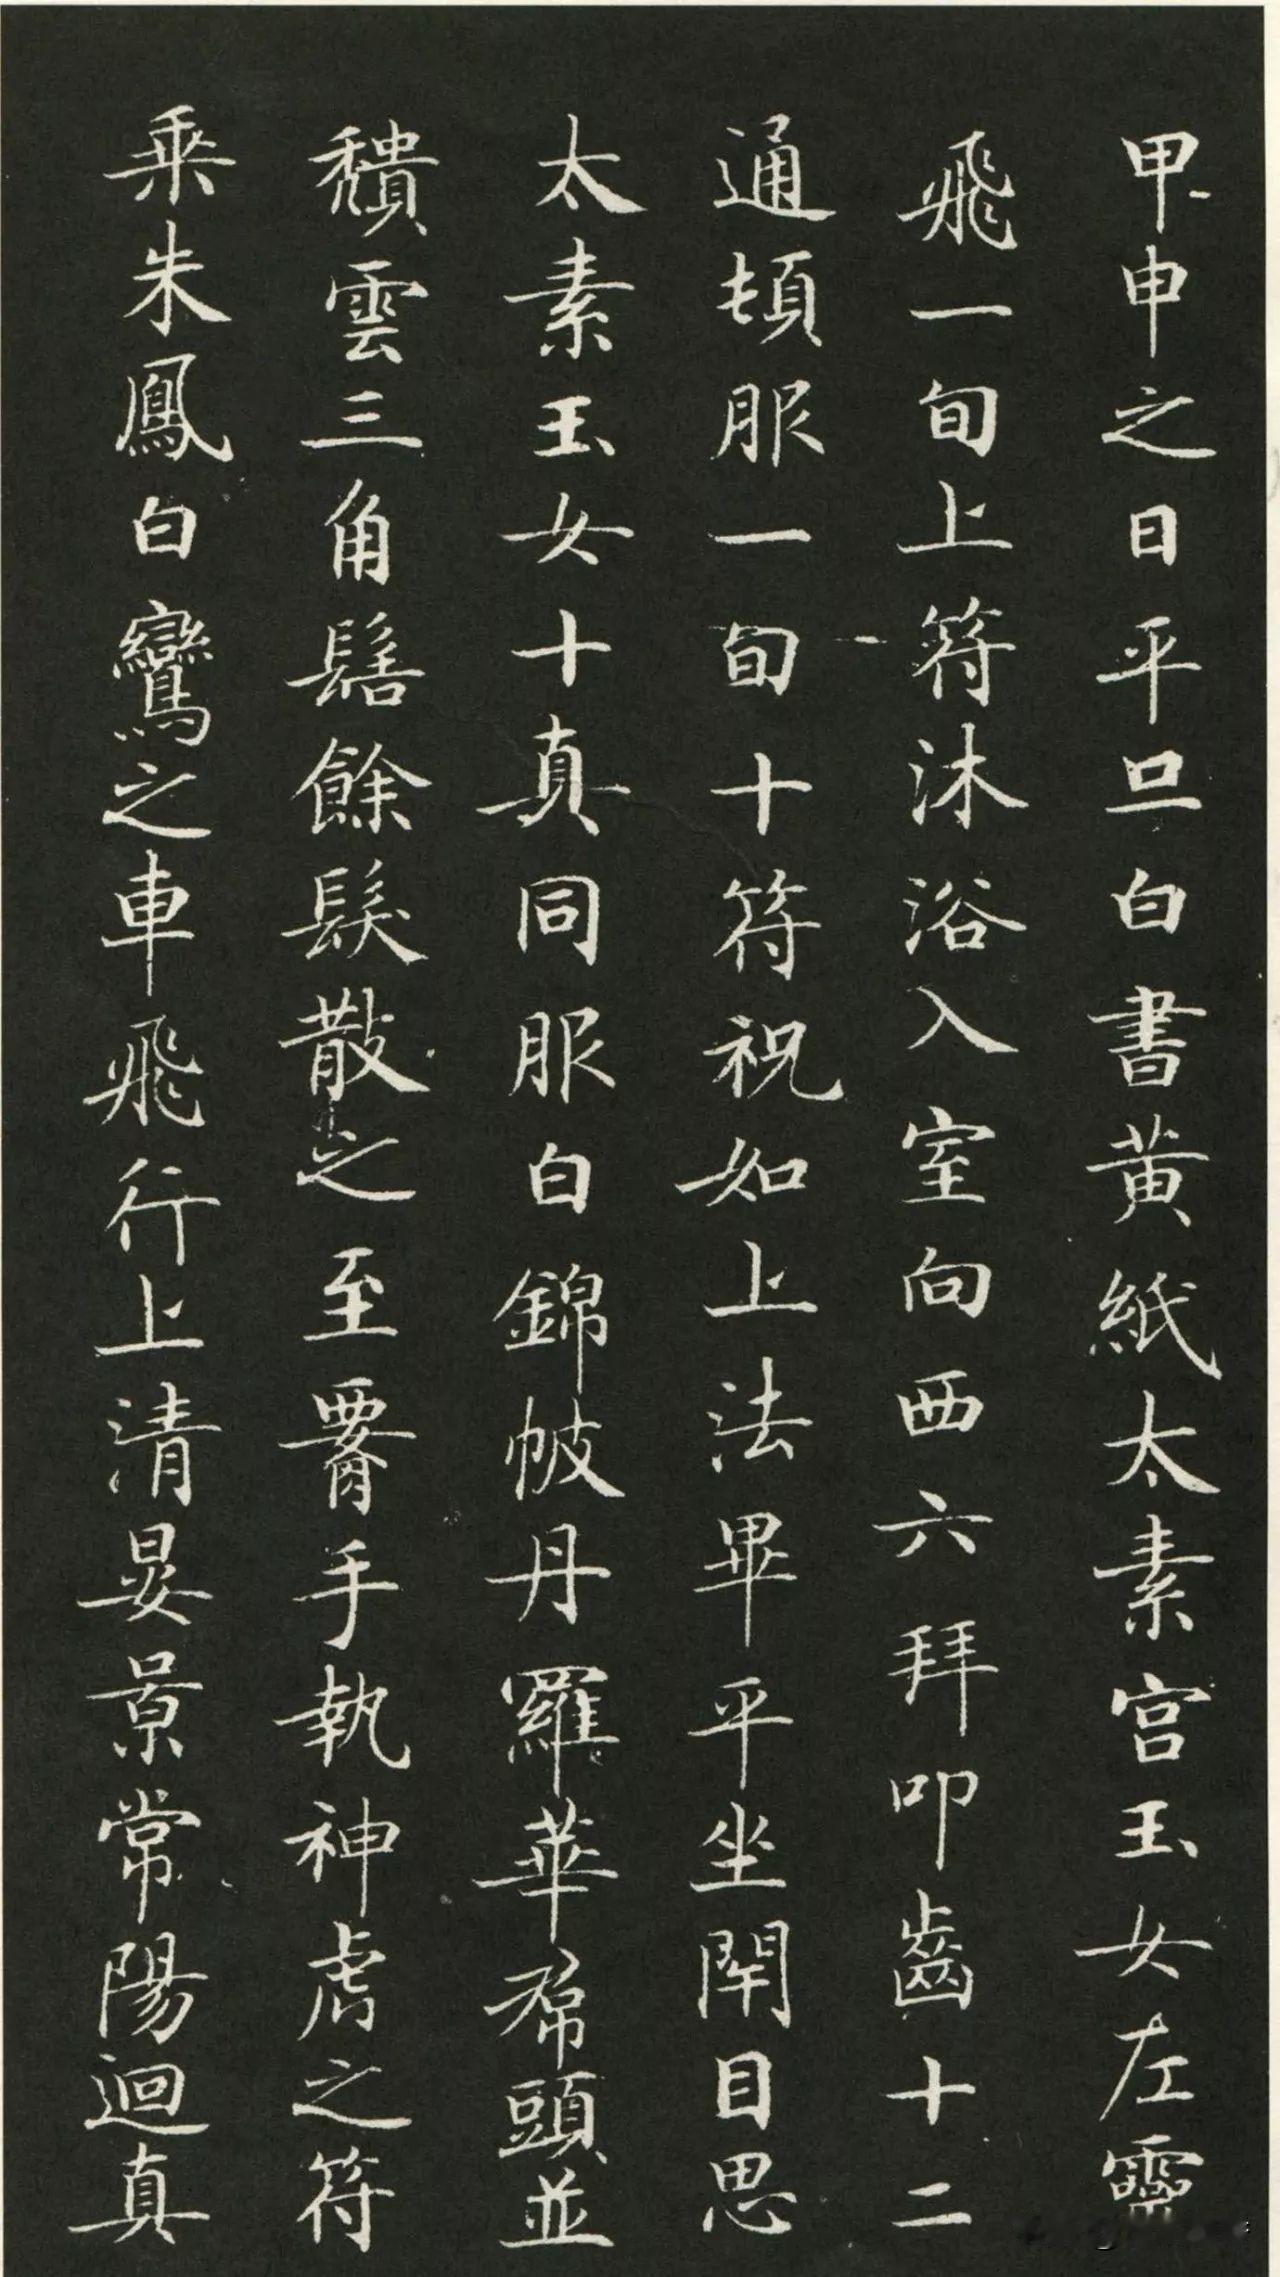 甲申之日平旦白書黃紙太素宮玉女左靈
飛一旬上符沐浴入室向西六拜叩齒十二
通頓服一旬十符祝如上法畢平坐閇目思
太素玉女十真同服白錦帔丹羅華帬頭並
穨雲三角髻餘髮散之至腰手執神虎之符
乘朱鳳白鸞之車飛行上清晏景常陽迴真